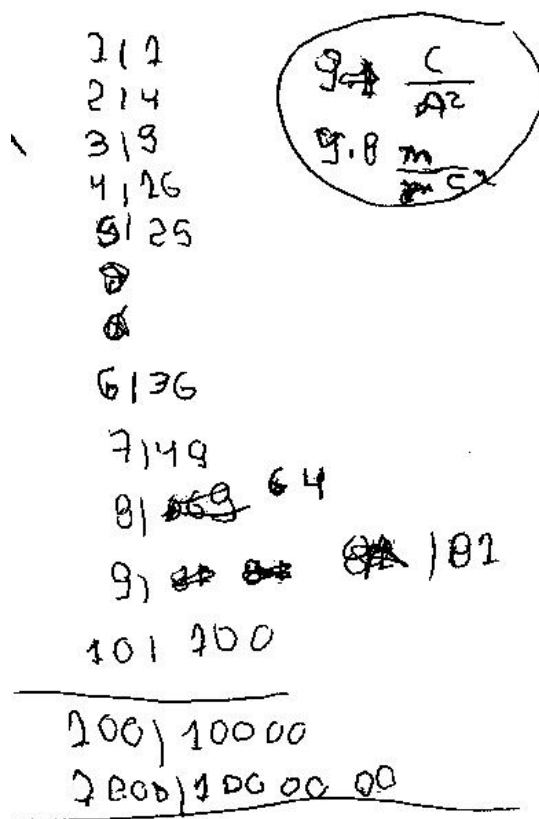 1 | 1
2 | 4
3 | 9
4 | 16
5 | 25
6 | 36
7 | 49
8 | 64
9 | 81
10 | 100
100 | 10000
1000 | 1000000
g → C / A²
9.8 m / s²